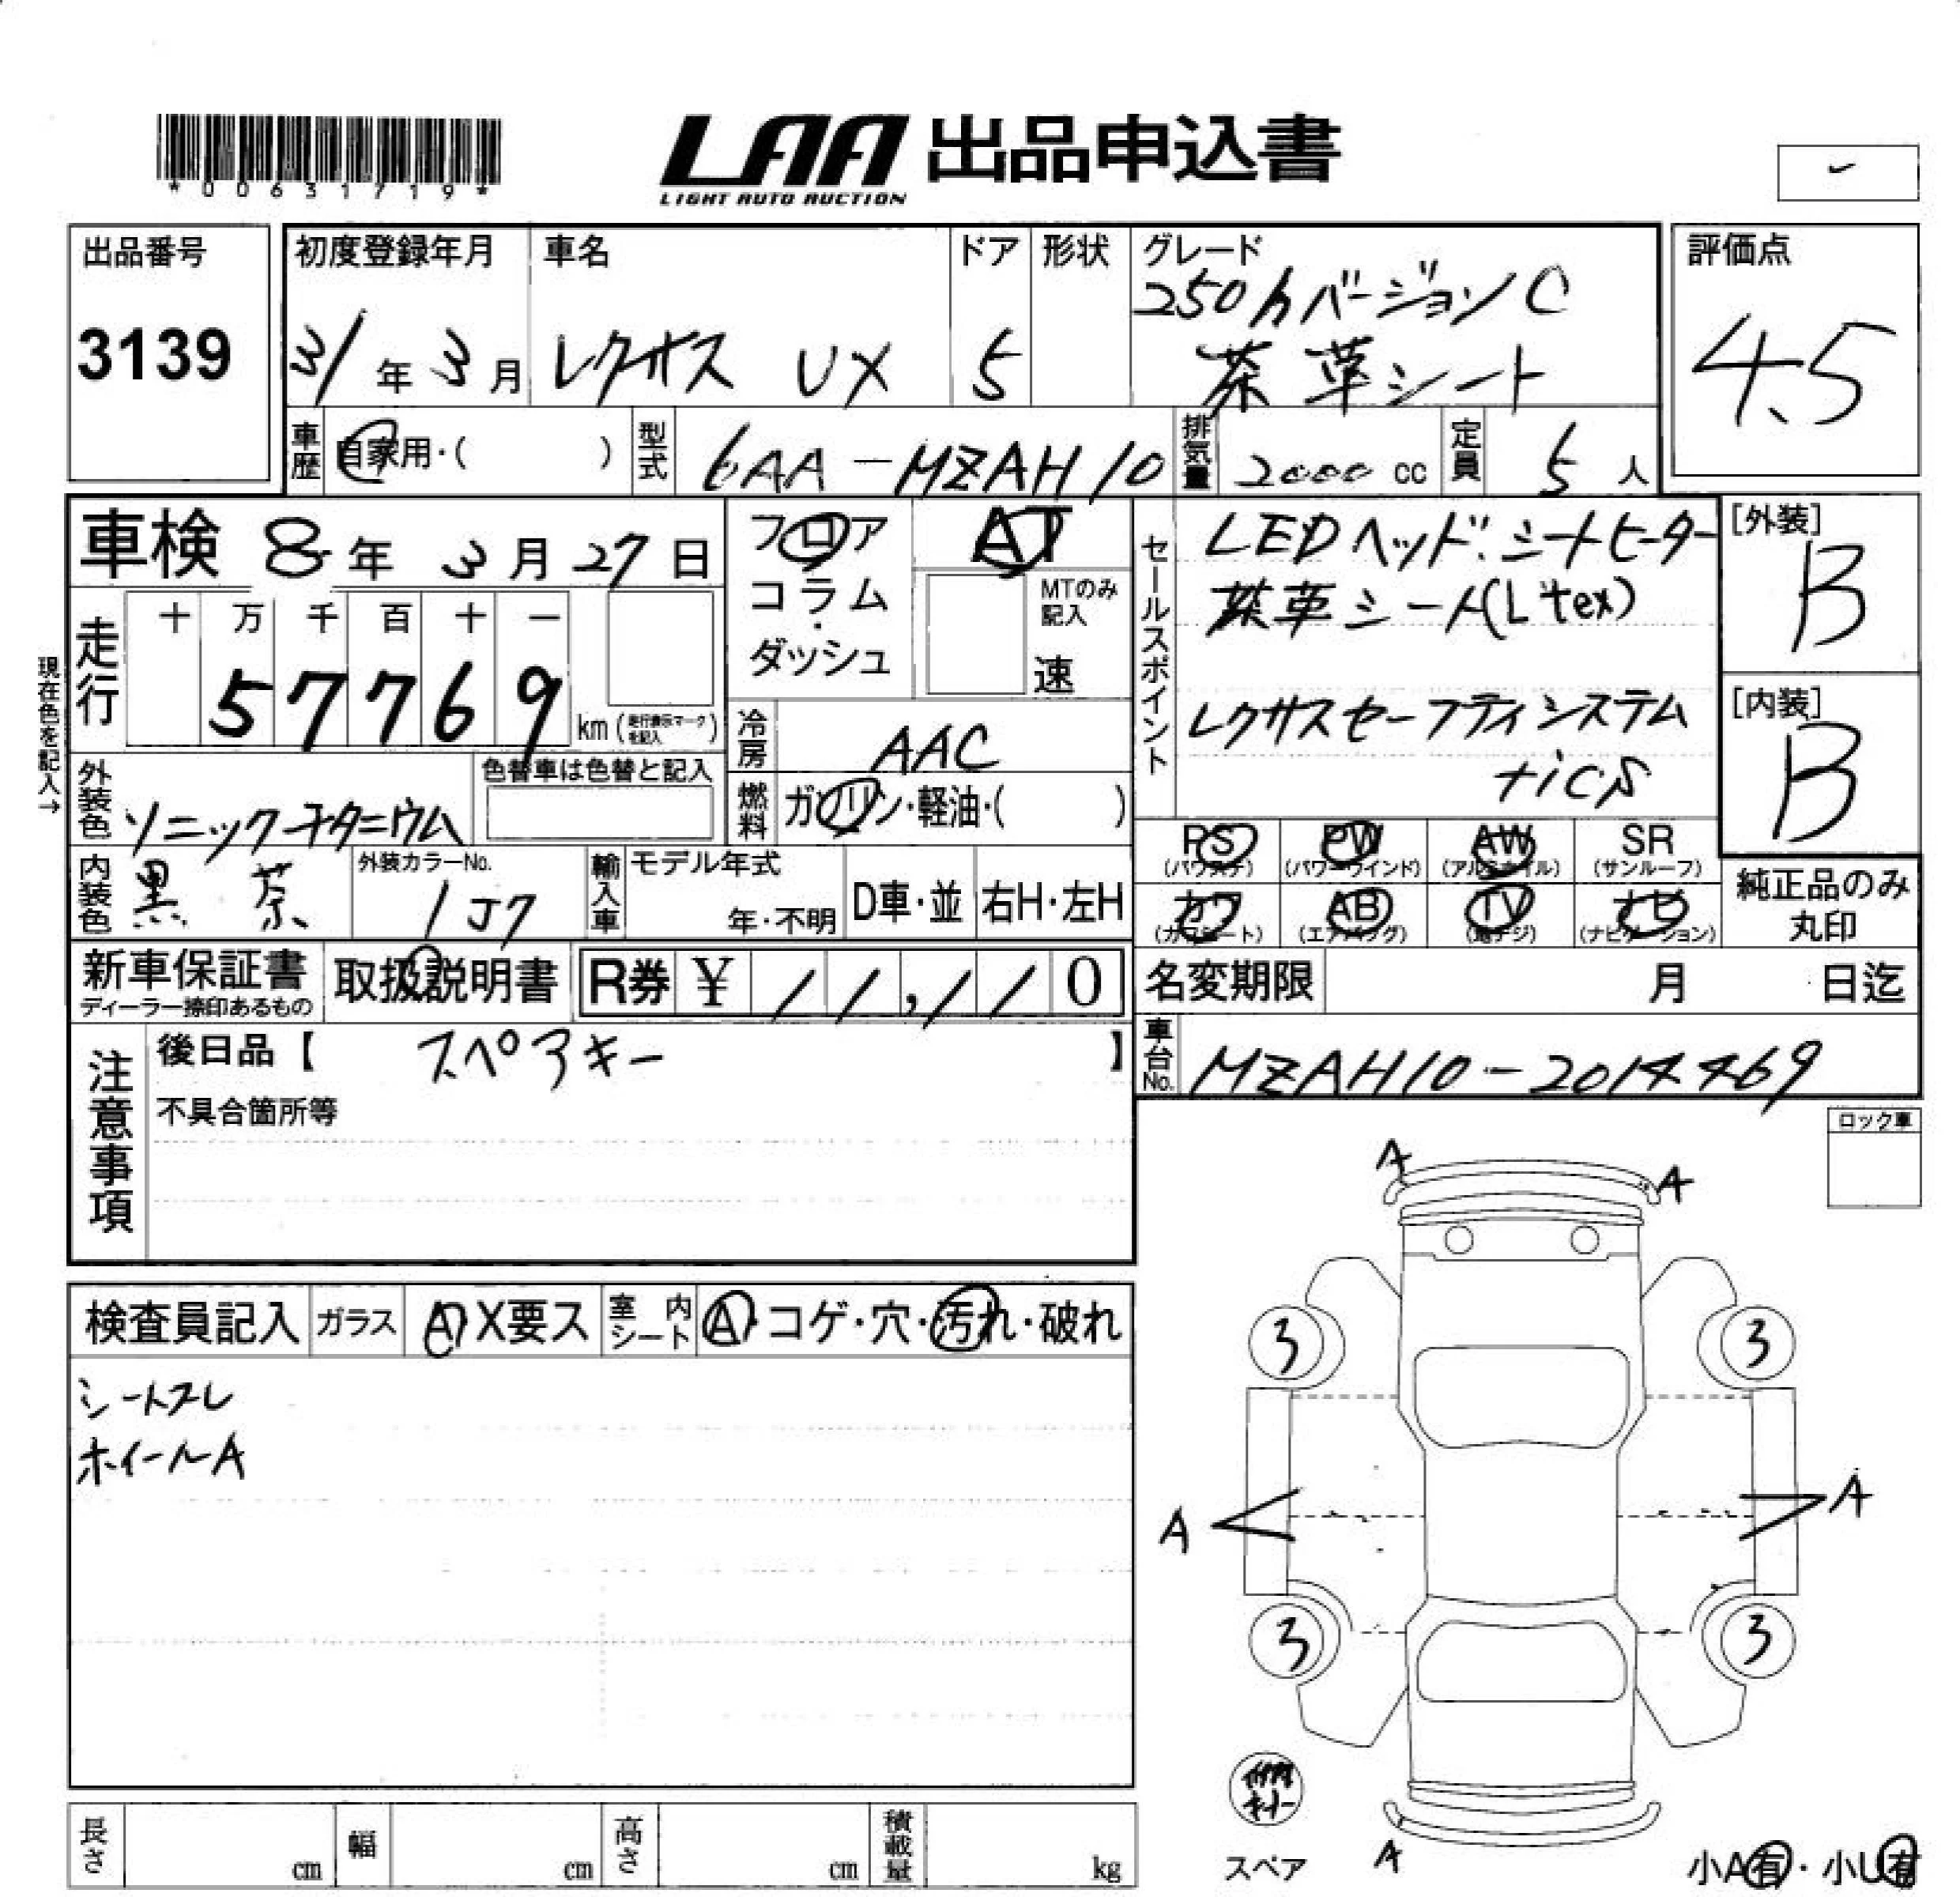 *00631719*
LAA 出品申込書
LIGHT AUTO AUCTION
-
出品番号
3139
初度登録年月
31年3月
車名
レクサス UX
ドア
5
形状
グレード
250hバージョンC
茶革シート
評価点
4.5
車歴
自家用・( )
型式
6AA-MZAH10
排気量
2000 cc
定員
5 人
車検 8年 3月 27日
フロア
コラム
・
ダッシュ
AT
MTのみ
記入
速
セールスポイント
LEDヘッド.シートヒーター
茶革シート(L tex)
レクサスセーフティシステム
+ICS
[外装]
B
[内装]
B
現在色を記入→
走行
十 万 千 百 十 一
5 7 7 6 9
km (走行表示マークを記入)
冷房
AAC
燃料
ガソリン・軽油・( )
外装色
ソニックチタニウム
色替車は色替と記入
内装色
黒 茶
外装カラーNo.
1J7
輸入車
モデル年式
年・不明
D車・並
右H・左H
PS
(パワステ)
PW
(パワーウインド)
AW
(アルミホイル)
SR
(サンルーフ)
カワ
(カワシート)
AB
(エアバッグ)
TV
(地デジ)
ナビ
(ナビゲーション)
純正品のみ
丸印
新車保証書
ディーラー捺印あるもの
取扱説明書
R券 ¥ / / , / / 0
名変期限 月 日迄
注意事項
後日品【 スペアキー 】
不具合箇所等
車台No.
MZAH10-2014469
ロック車
検査員記入
ガラス
A X要ス
室内シート
A・コゲ・穴・汚れ・破れ
シートスレ
ホイールA
A
A
3
3
A
A
3
3
スペア
A
小A有・小U有
長さ cm
幅 cm
高さ cm
積載量 kg